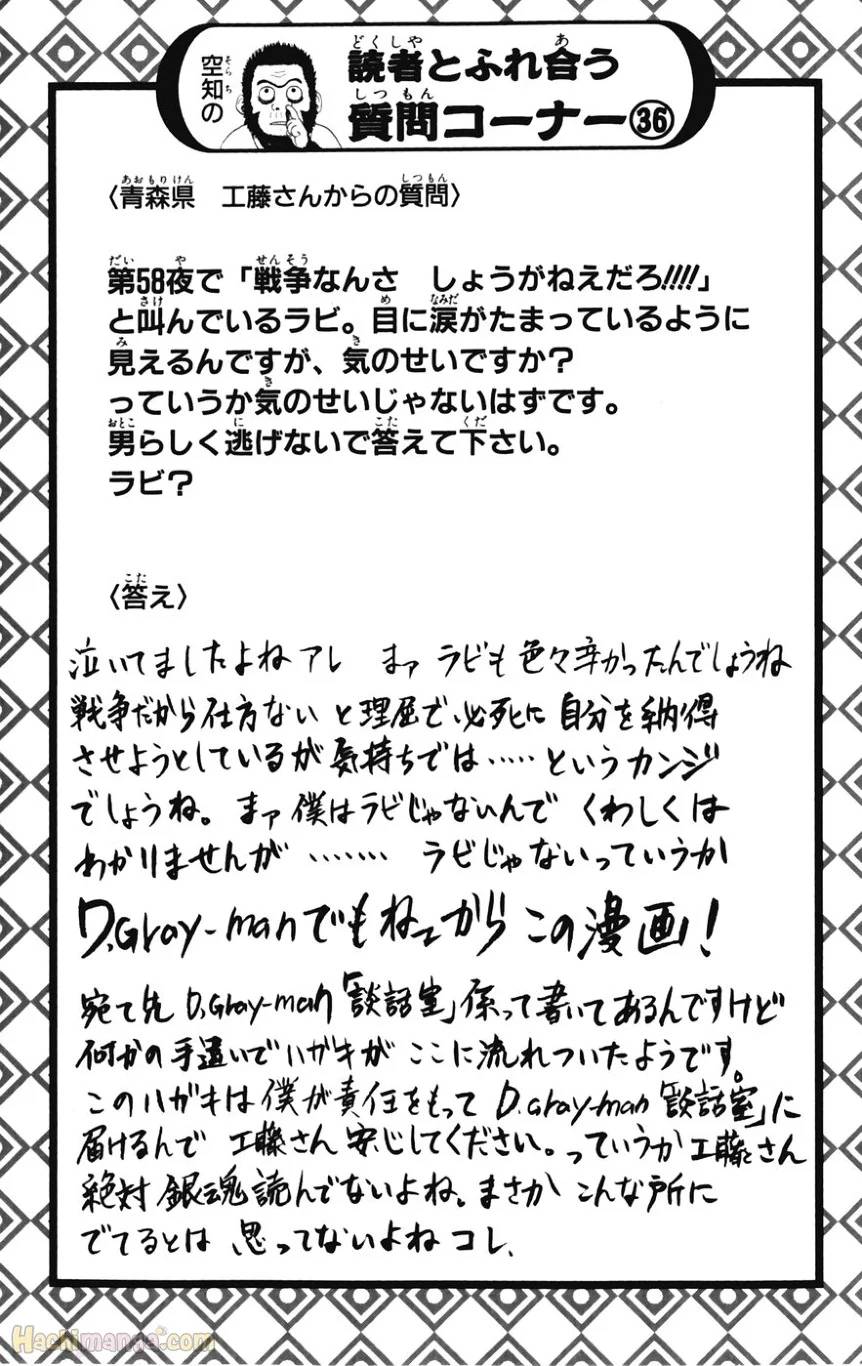 空知の
読者とふれ合う
質問コーナー㊱
〈青森県　工藤さんからの質問〉
第58夜で「戦争なんさ　しょうがねえだろ!!!!」
と叫んでいるラビ。目に涙がたまっているように
見えるんですが、気のせいですか？
っていうか気のせいじゃないはずです。
男らしく逃げないで答えて下さい。
ラビ？
〈答え〉
泣いてましたよねアレ　まァ ラビも色々辛かったんでしょうね
戦争だから仕方ない と理屈で必死に 自分を納得
させようとしているが気持ちでは…… というカンジ
でしょうね。まァ 僕はラビじゃないんで くわしくは
わかりませんが ……… ラビじゃないっていうか
D.Gray-manでもねーから この漫画！
宛て先 D.Gray-man「談話室」係って書いてあるんですけど
何かの手違いでハガキが ここに流れついたようです。
このハガキは 僕が責任をもって D.Gray-man「談話室」に
届けるんで 工藤さん 安じしてください。っていうか工藤さん
絶対 銀魂読んでないよね。まさか こんな所に
でてるとは 思ってないよねコレ、
Hachimanga.com